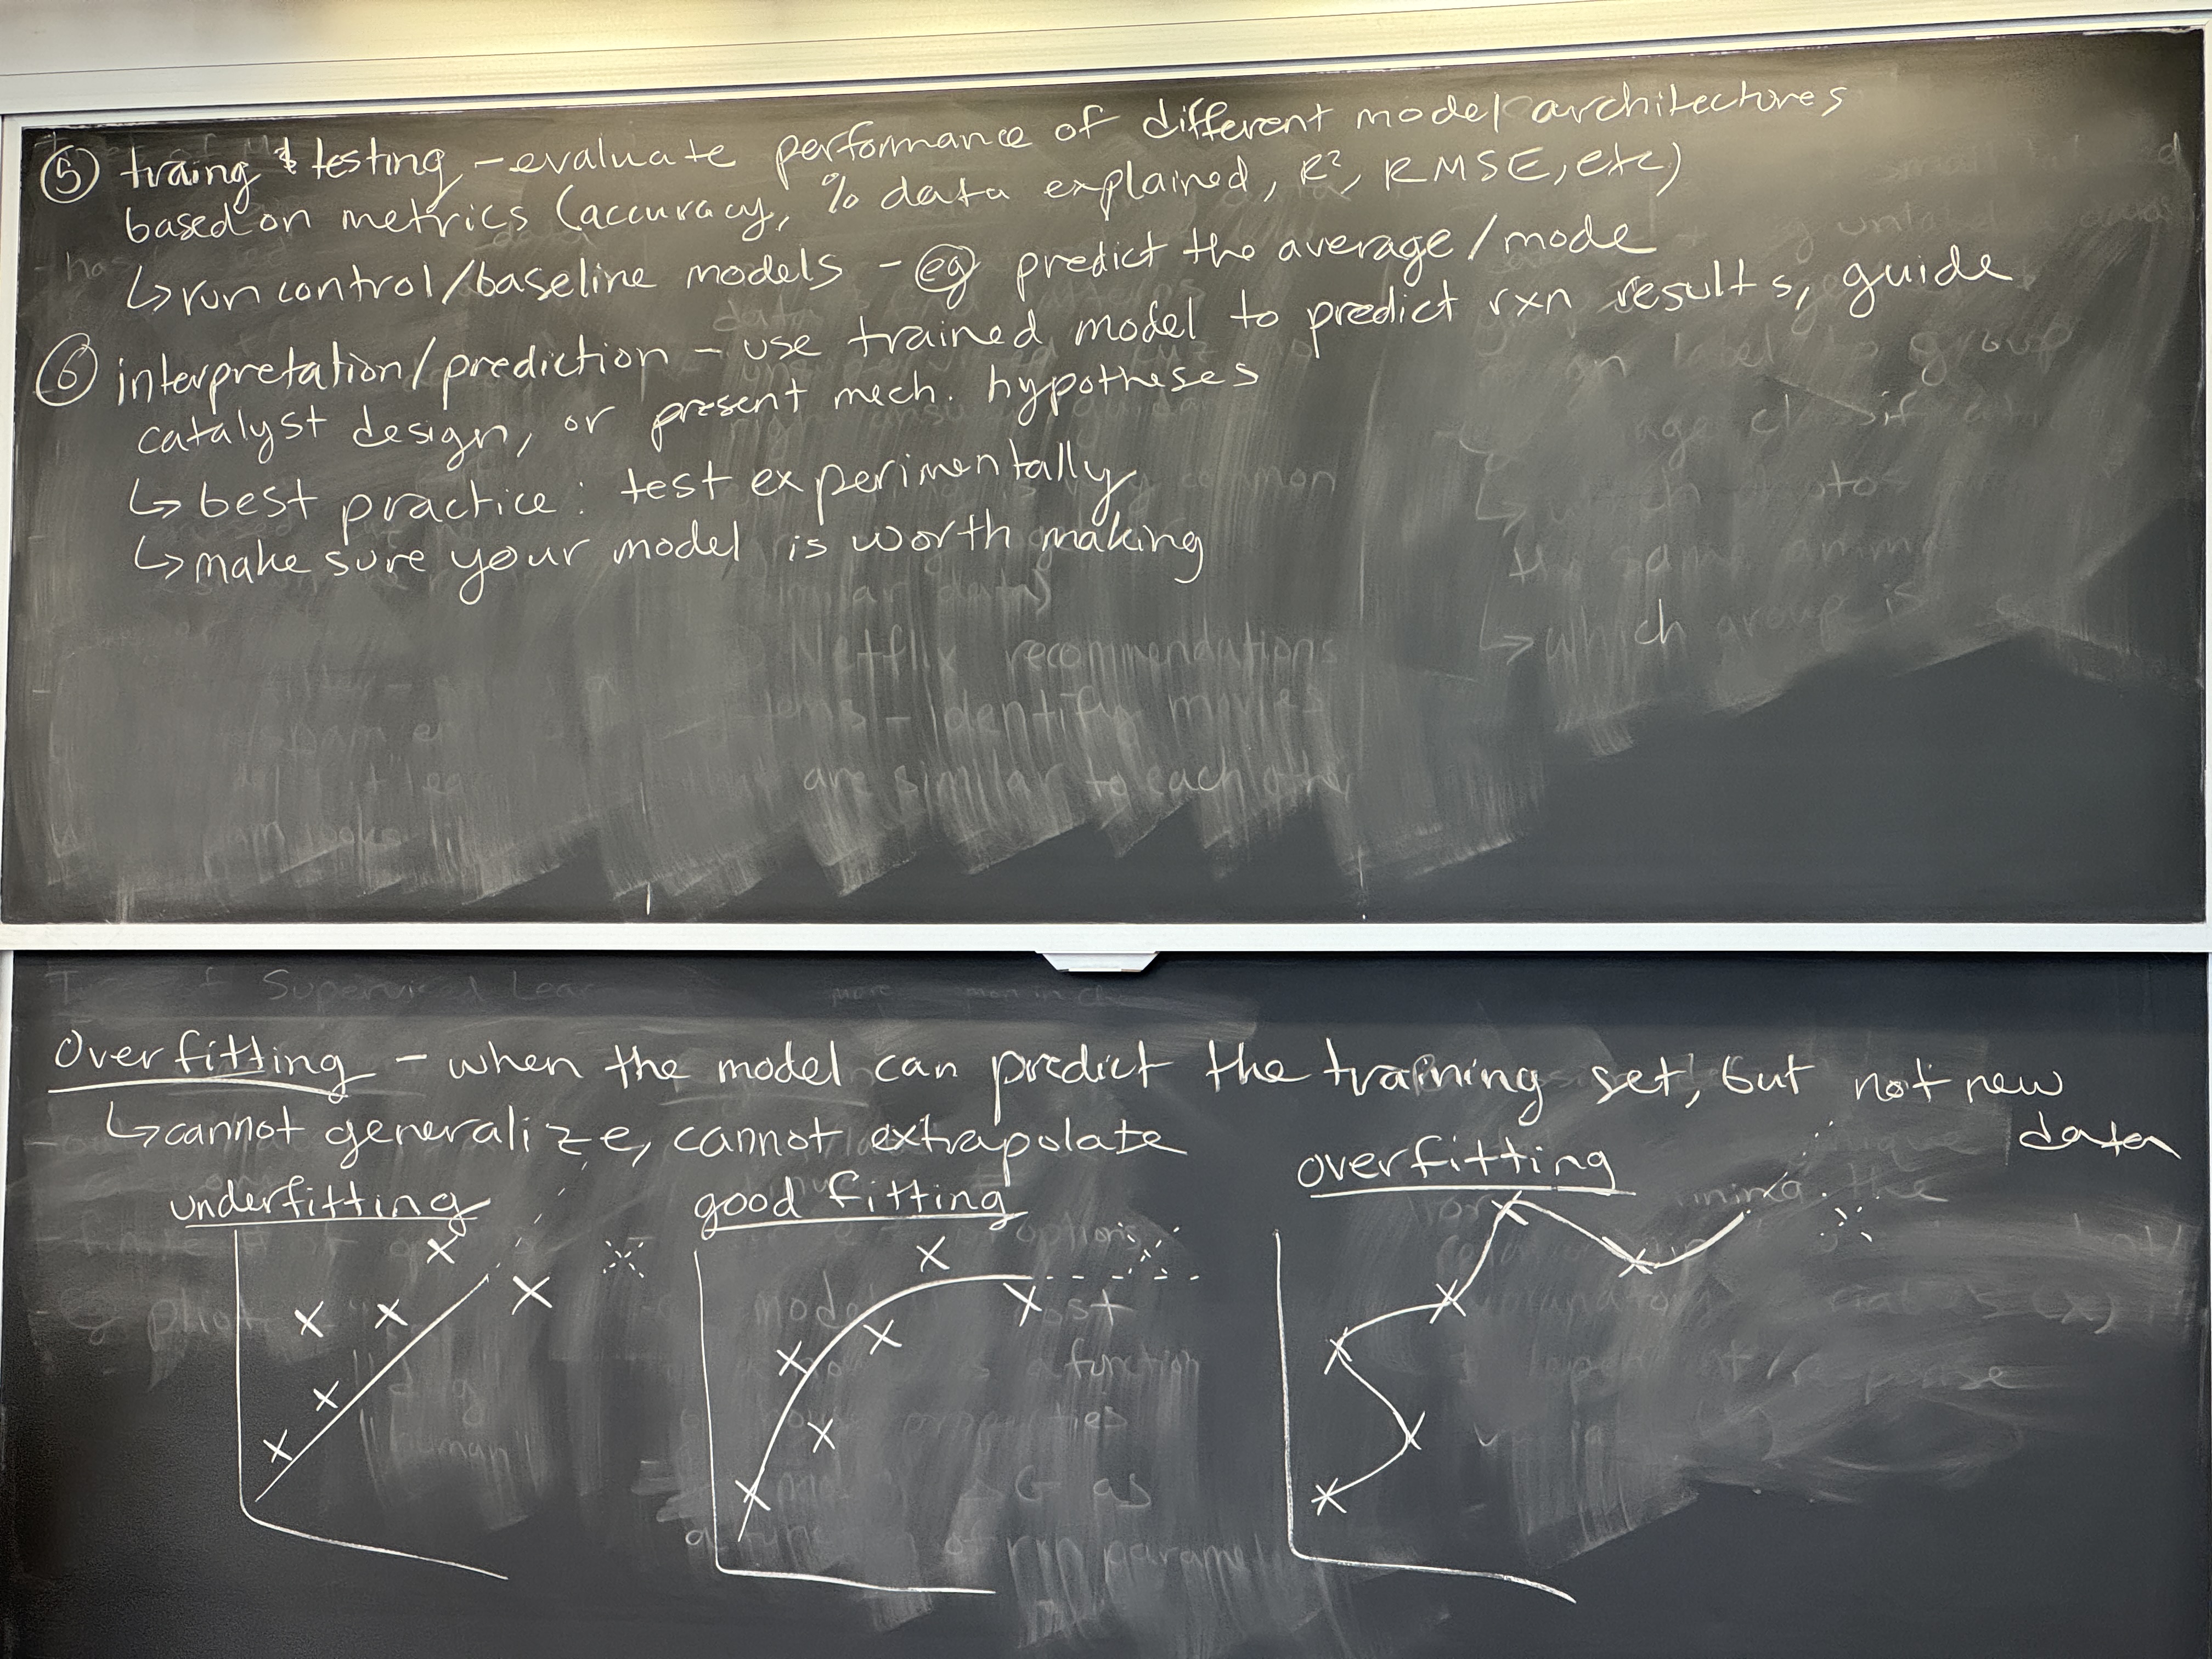 ⑤ traing & testing - evaluate performance of different model architectures
based on metrics (accuracy, % data explained, R², RMSE, etc)
↳ run control/baseline models - eg predict the average/mode
⑥ interpretation/prediction - use trained model to predict rxn results, guide
catalyst design, or present mech. hypotheses
↳ best practice: test experimentally
↳ make sure your model is worth making
Netflix recommendations
identify movies
are similar to each other
↳ which group is
Supervised
Overfitting - when the model can predict the training set, but not new
data
↳ cannot generalize, cannot extrapolate
underfitting
good fitting
overfitting
human
a function
G as
rxn